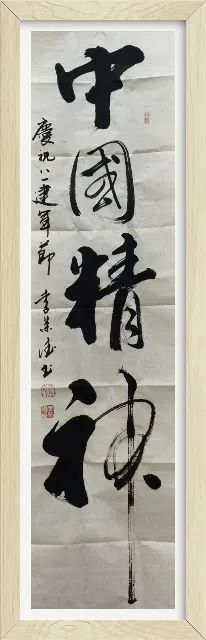 中國精神
慶祝八一建軍節
李荣海书